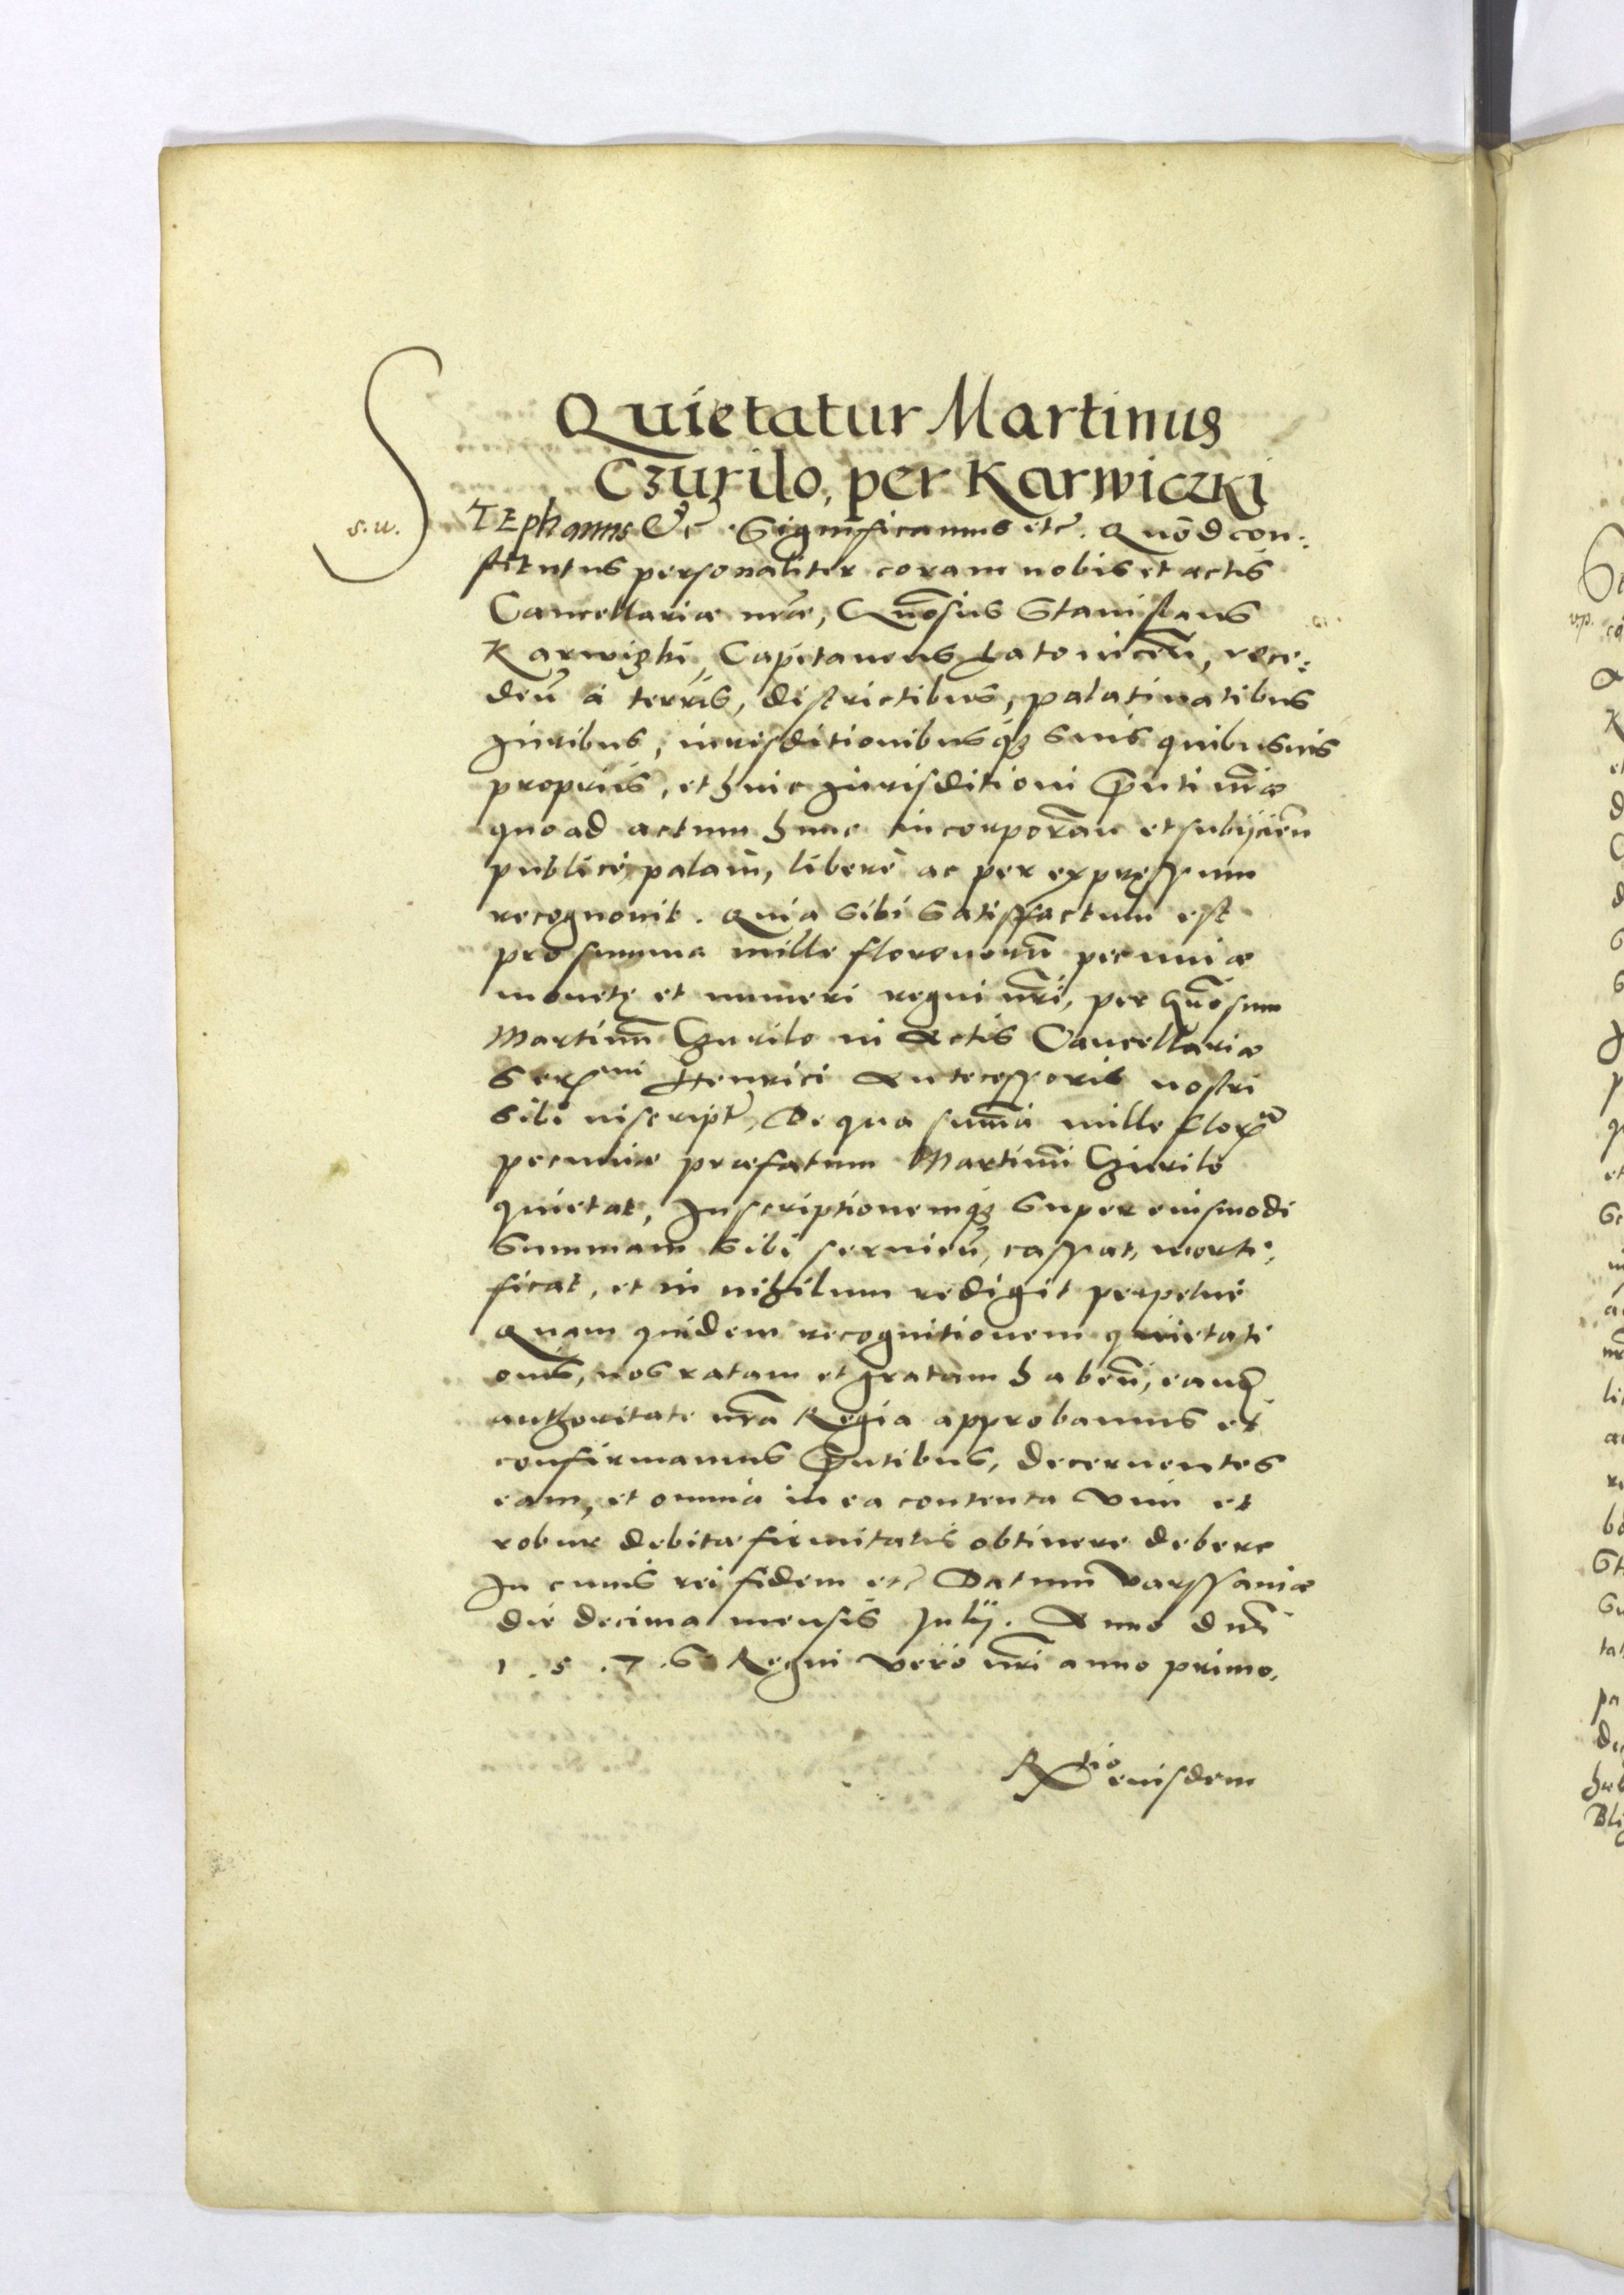 Quietatur Martinus
Czurilo, per Karwiczki
s. u.
STEphanus &c. Significamus etc. Quod con:
stitutus personaliter coram nobis et actis
Cancellariæ nræ, Gnosus Stanislaus
Karwizki, Capitaneus Latovicen, rece:
den a terris, districtibus, palatinatibus
Juribus, iurisditionibusq; suis quibusuis
propriis, et huic Jurisditioni pñti nræ
quoad actum hunc incorporan et subijcien
publicè, palàm, liberè ac per expressum
recognouit. Quia sibi satisfactum est
pro summa mille florenorũ pecuniæ
monetę et numeri regni nri, per Gnosum
Martinũ Czurilo in Actis Cancellariæ
Serᵐⁱ Henrici Antecessoris nostri
sibi inscript, De qua suma mille flor
pecuniæ præfatum Martinũ Czurilo
quietat, Inscriptionemq; super eiusmodi
summam sibi seruien, cassat, morti:
ficat, et in nihilum redigit perpetuè
Quam quidem recognitionem quietati
onis, nos ratam et gratam haben, eand
authoritate nra Regia approbamus et
confirmamus pñtibus, decernentes
eam, et omnia in ea contenta vim et
robur debitæ firmitatis obtinere debere
In cuius rei fidem etc Datum Varssauiæ
die decima mensis July. Anno dni
1.5.7.6 Regni vero nri anno primo.
Rtio eiusdem